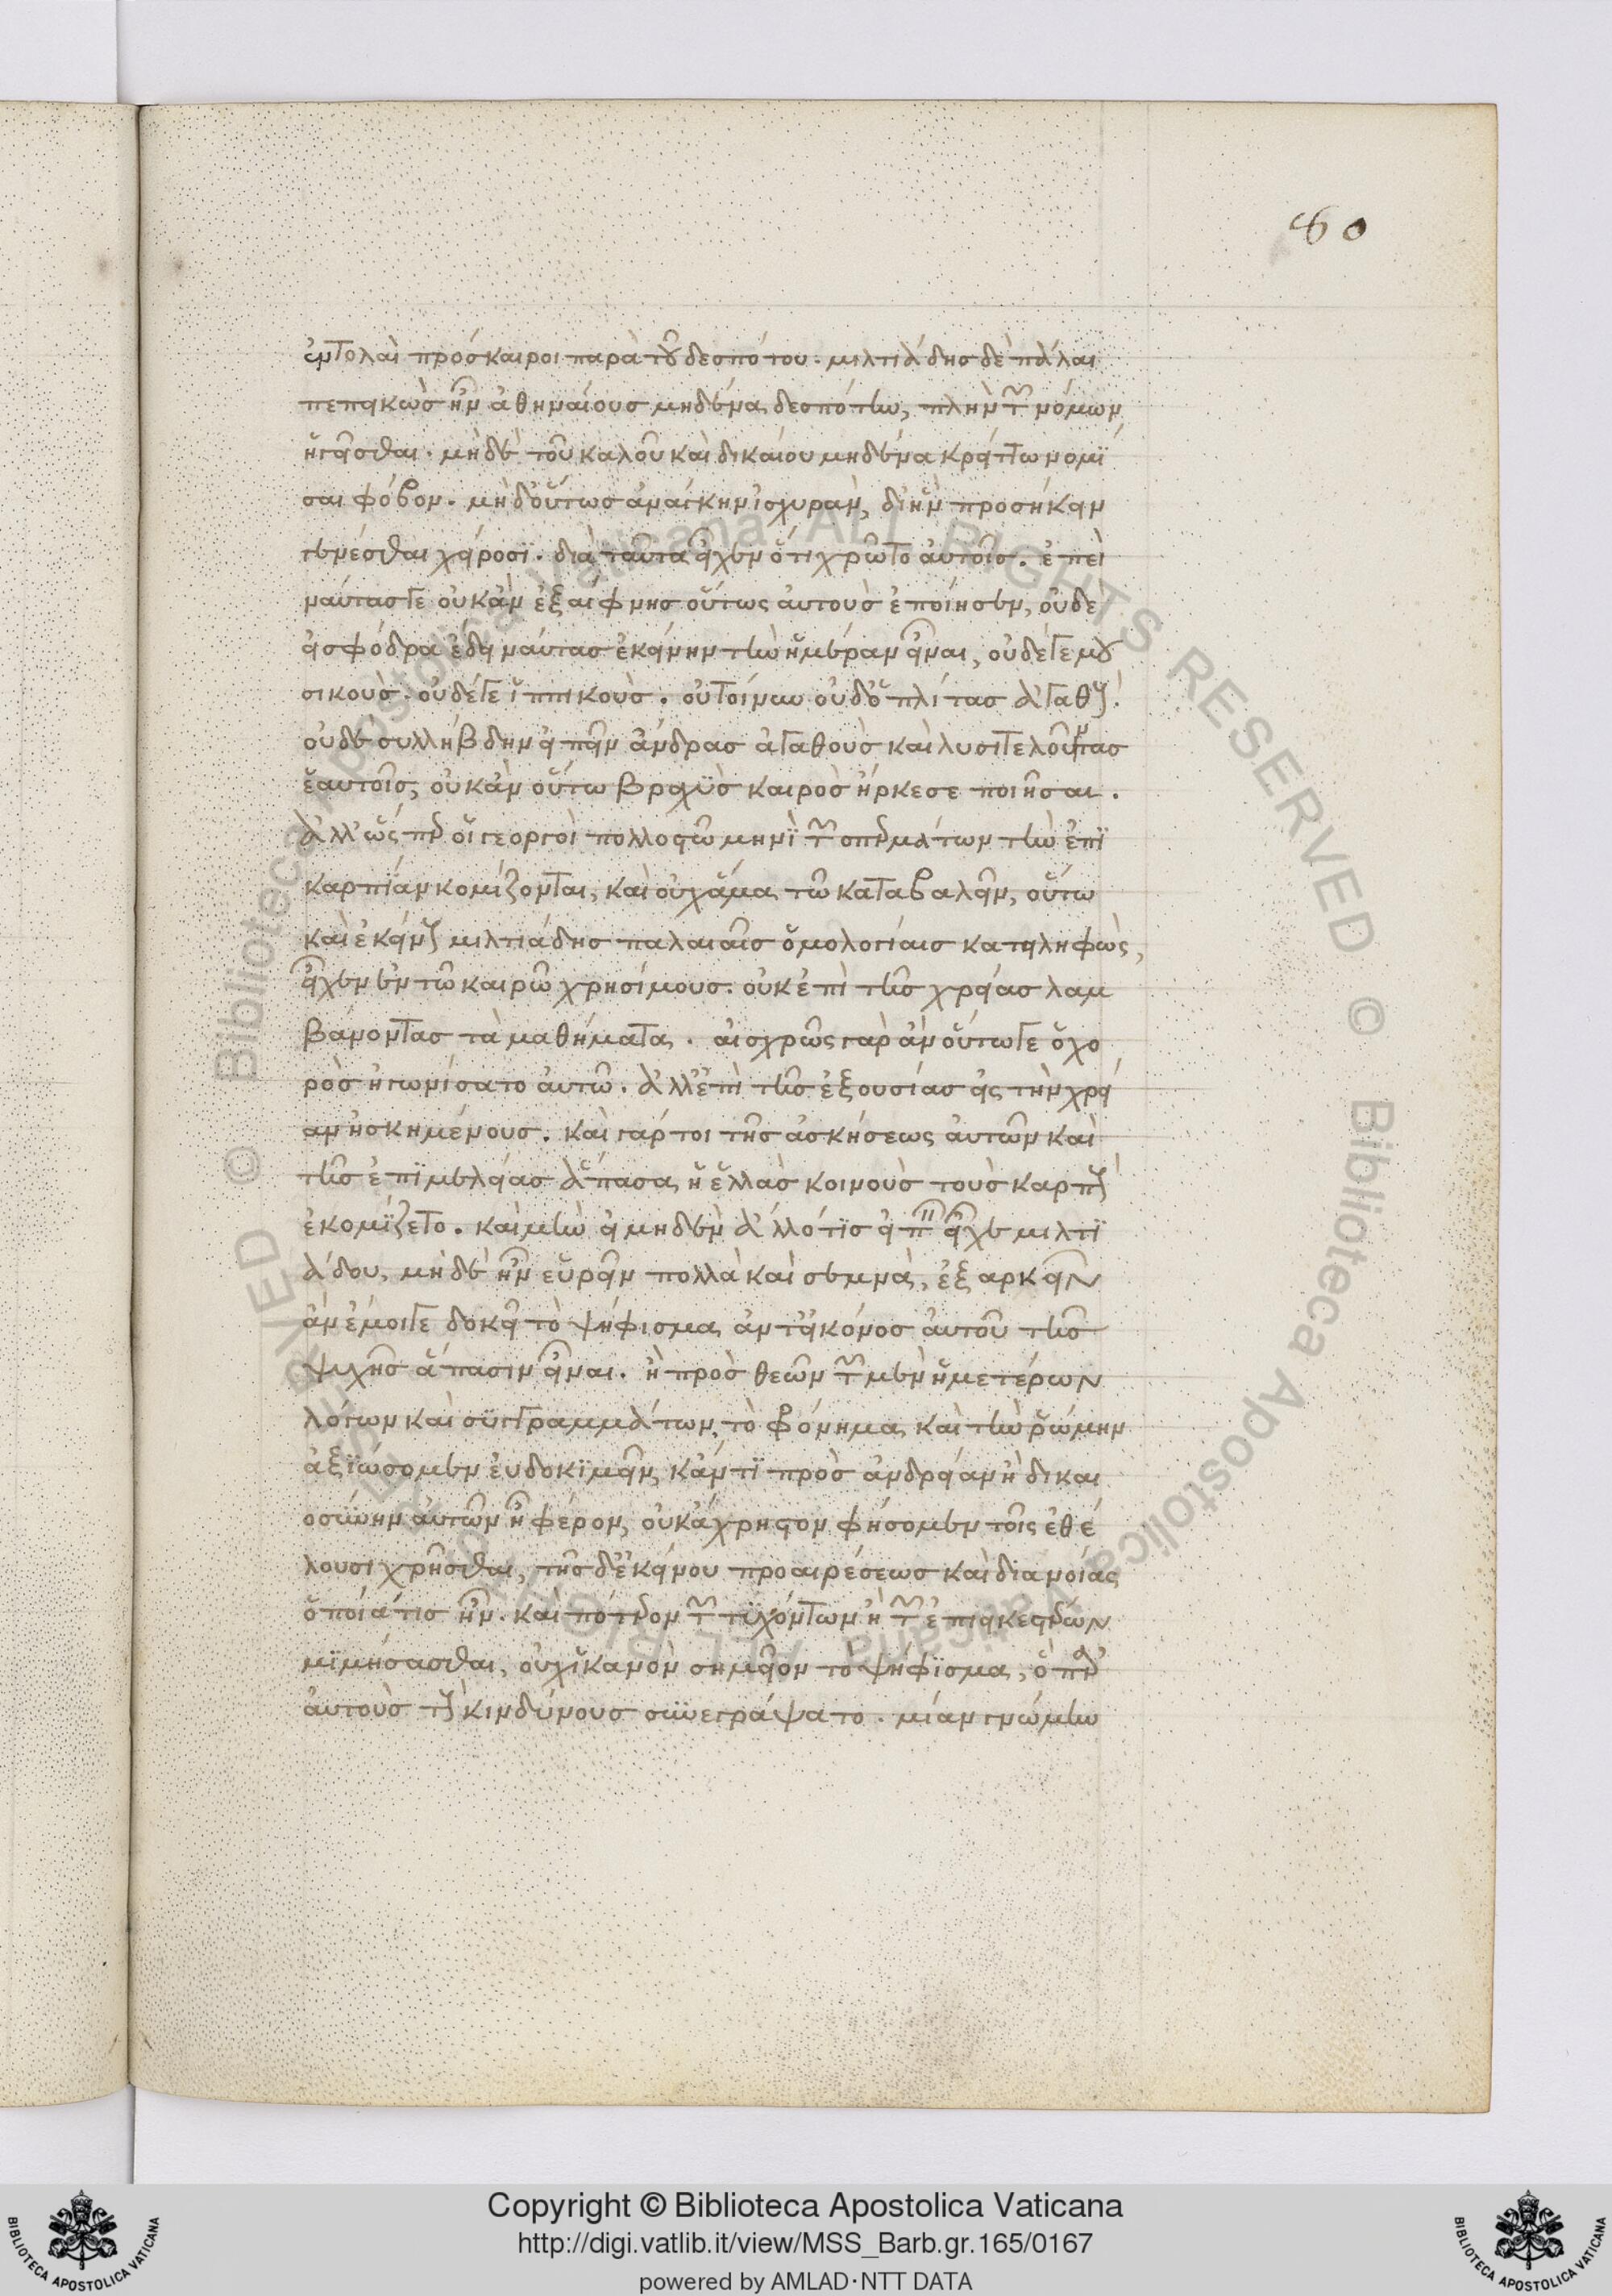 80
ἐντολαὶ πρόσκαιροι παρὰ τοῦ δεσπότου. μιλτιάδησ δὲ πάλαι
πεπεικὼσ ἦν ἀθηναίουσ μηδένα δεσπότην, πλὴν τῶν νόμων
ἡγεῖσθαι. μηδὲ τοῦ καλοῦ καὶ δικαίου μηδένα κρείττω νομί
σαι φόβον. μὴδ' οὕτωσ ἀναίγκην ἰσχυρὰν, δι' ἣν προσήκειν
γενέσθαι χείροσϊ. διὰ ταῦτα εἶχεν ὅτι χρῶτο αὐτοῖσ. ἐπεὶ
ναύτασγε οὐκ ἂν ἐξαίφνησ οὕτως αὐτοὺσ ἐποίησεν, οὐδὲ
εἰ σφόδρα ἔδει ναύτασ ἐκείνην τὴν ἡμέραν εἶναι, οὐδέ γε μου
σικοὺσ. οὐδέ γε ἱππικοὺσ. οὐ τοίνυν οὐδ' ὁπλίτασ ἀγαθοὺς.
οὐδὲ συλλήβδην εἰπεῖν ἄνδρασ ἀγαθοὺσ καὶ λυσιτελοῦντασ
ἑαυτοῖσ, οὐκ ἂν οὕτω βραχὺσ καιρὸσ ἤρκεσε ποιῆσαι.
ἀλλ' ὥσπερ οἱ γεοργοὶ πολλοστῶ μηνϊ τῶν σπερμάτων τὴν ἐπϊ
καρπίαν κομίζονται, καὶ οὐχ ἅμα τῶ καταβαλεῖν, οὕτω
καὶ ἐκείνους μιλτιάδησ παλαιαῖσ ὁμολογίαισ κατειληφὼς,
εἶχεν ἐν τῶ καιρῶ χρησίμουσ. οὐκ ἐπὶ τῆσ χρείασ λαμ
βάνοντασ τὰ μαθήματα. αἰσχρῶς γὰρ ἂν οὕτωγε ὁ χο
ρὸσ ἠγωνίσατο αὐτῶ. ἀλλ' ἐπὶ τῆσ ἐξουσίασ εἰς τὴν χρεί
αν ἠσκημένουσ. καὶ γάρτοι τῆσ ἀσκήσεως αὐτῶν καὶ
τῆσ ἐπϊμελείασ ἅπασα ἡ ἑλλὰσ κοινοὺσ τοὺσ καρποὺς
ἐκομίζετο. καὶ μὴν εἰ μηδὲν ἄλλό τϊσ εἰπεῖν εἶχε μιλτϊ
άδου, μηδὲ ἦν εὑρεῖν πολλὰ καὶ σεμνὰ, ἐξαρκεῖν
ἂν ἔμοιγε δοκεῖ τὸ ψήφισμα ἀντ' εἰκόνοσ αὐτοῦ τῆσ
ψυχῆσ ἅπασιν εἶναι. ἢ πρὸσ θεῶν τῶν μὲν ἡμετέρων
λόγων καὶ συγγραμμάτων, τὸ φρόνημα καὶ τὴν ῥώμην
ἀξϊώσομεν εὐδοκϊμεῖν, κἄν τϊ πρὸσ ἀνδρείαν ἢ δικαι
οσύνην αὐτῶν ἦ φέρον, οὐκ ἄχρηστον φήσομεν τοῖς ἐθέ
λουσι χρῆσθαι, τῆσ δ' ἐκείνου προαιρέσεωσ καὶ διανοίας
ὁποία τισ ἦν. καὶ πότερον τῶν τϋχόντων ἢ τῶν ἐπιεικεστέρων
μϊμήσασθαι, οὐχ ἱκανὸν σημεῖον τὸ ψήφϊσμα, ὃ περὶ
αὐτοὺσ τοὺς κινδύνουσ συνεγράψατο. μίαν γνώμην
Copyright © Biblioteca Apostolica Vaticana
http://digi.vatlib.it/view/MSS_Barb.gr.165/0167
powered by AMLAD·NTT DATA